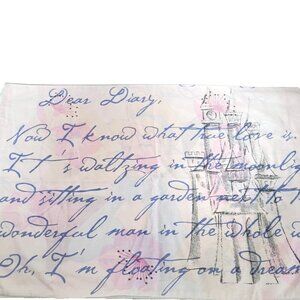 Dear Diary,
Now I know what true love is
It's waltzing in the moonlig
and sitting in a garden next to t
wonderful man in the whole w
Oh, I'm floating on a dream